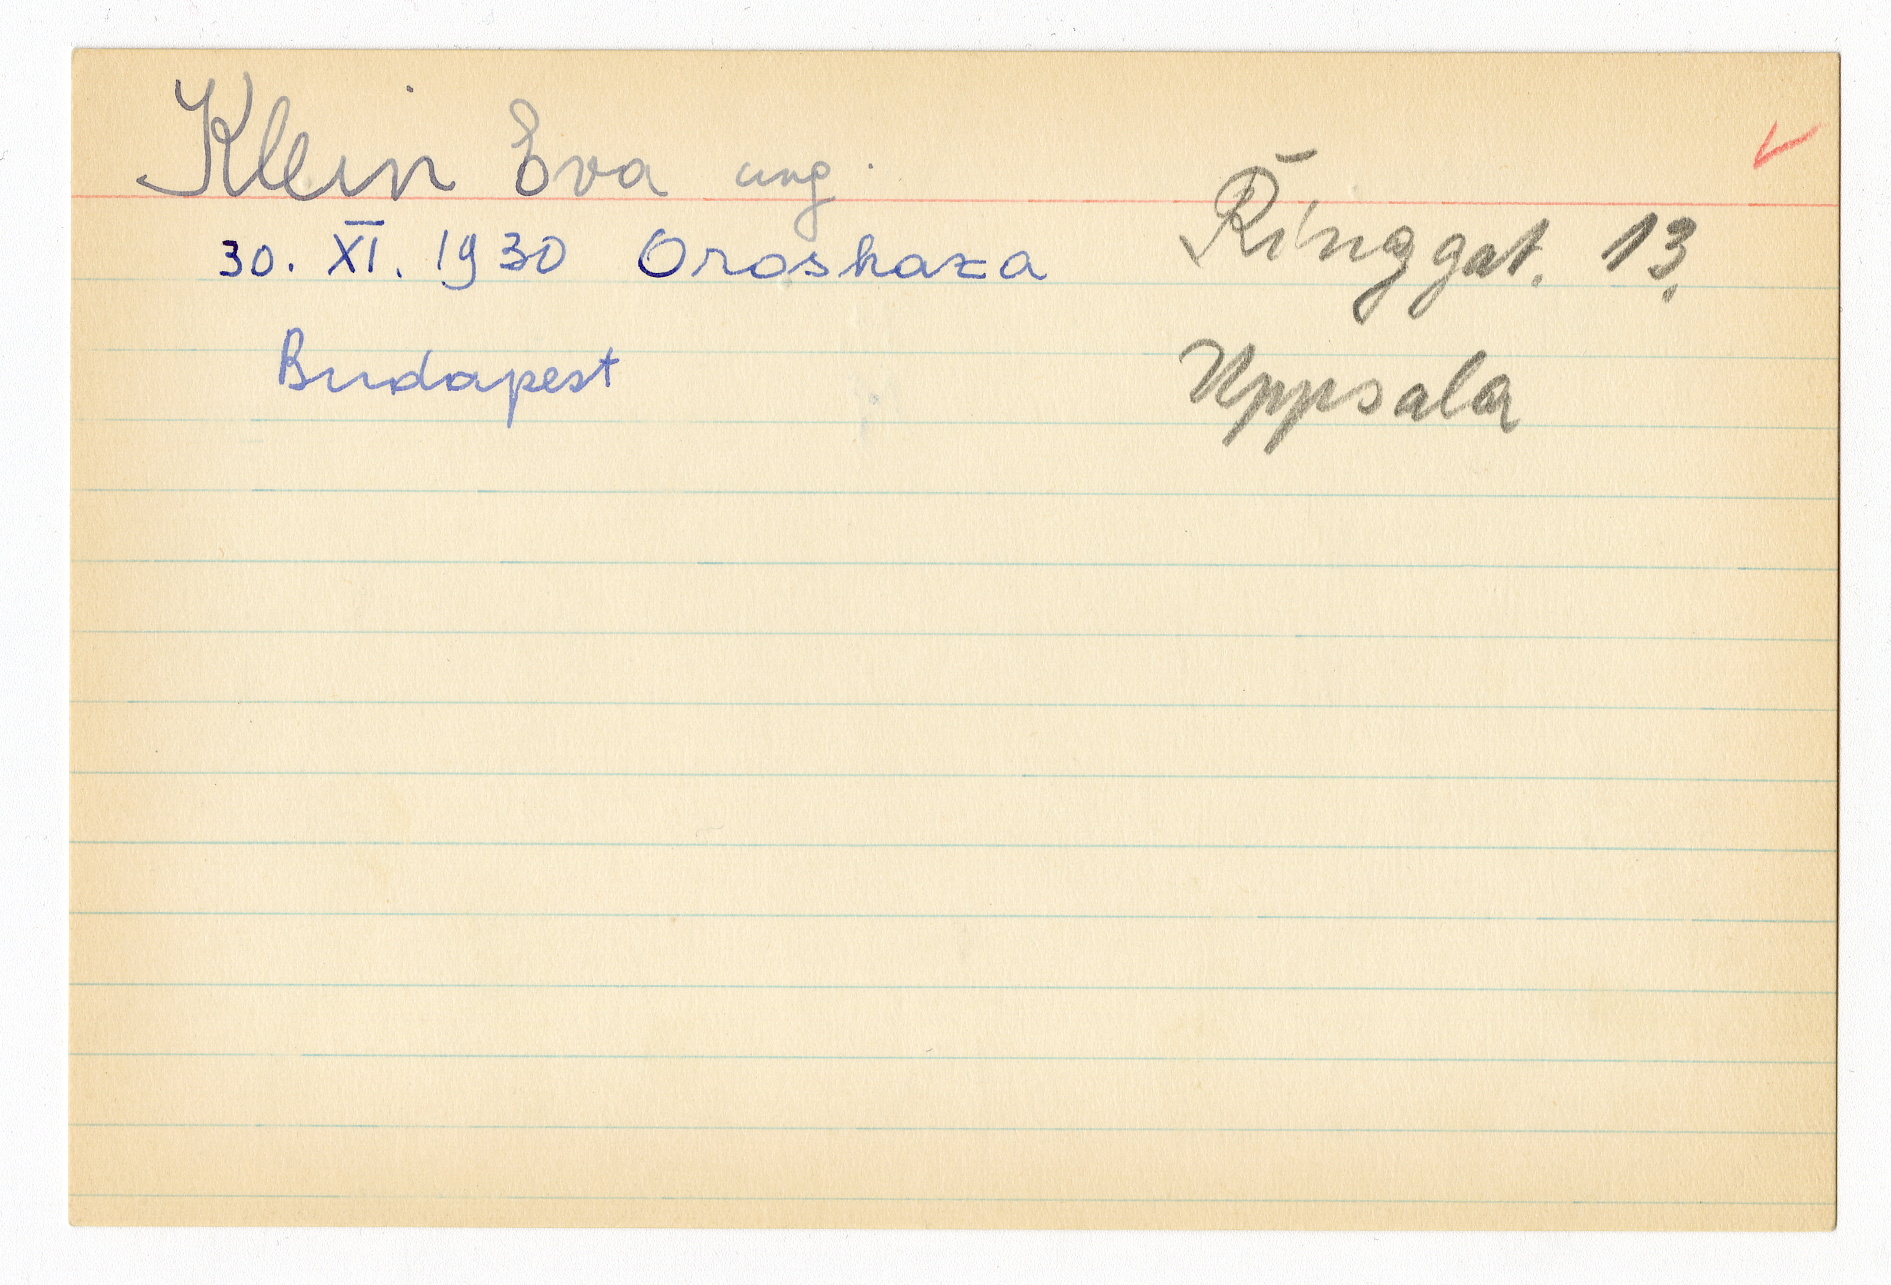 Klein Eva ung.
30. XI. 1930 Oroshaza
Budapest
Ringgat. 13.
Uppsala